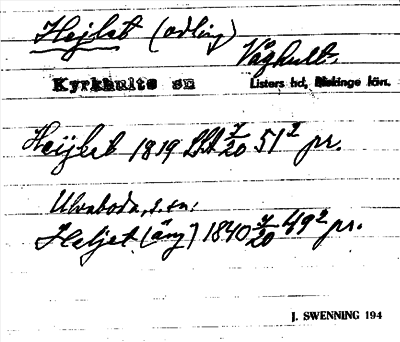 Hejlet (odling)
Våghult.
Kyrkhults sn
Listers hd, Blekinge län.
Heijlet 1819 51² pr.
Ulvaboda, s. sn:
Heljet (äng) 1840 20 49² pr.
J. SWENNING 194